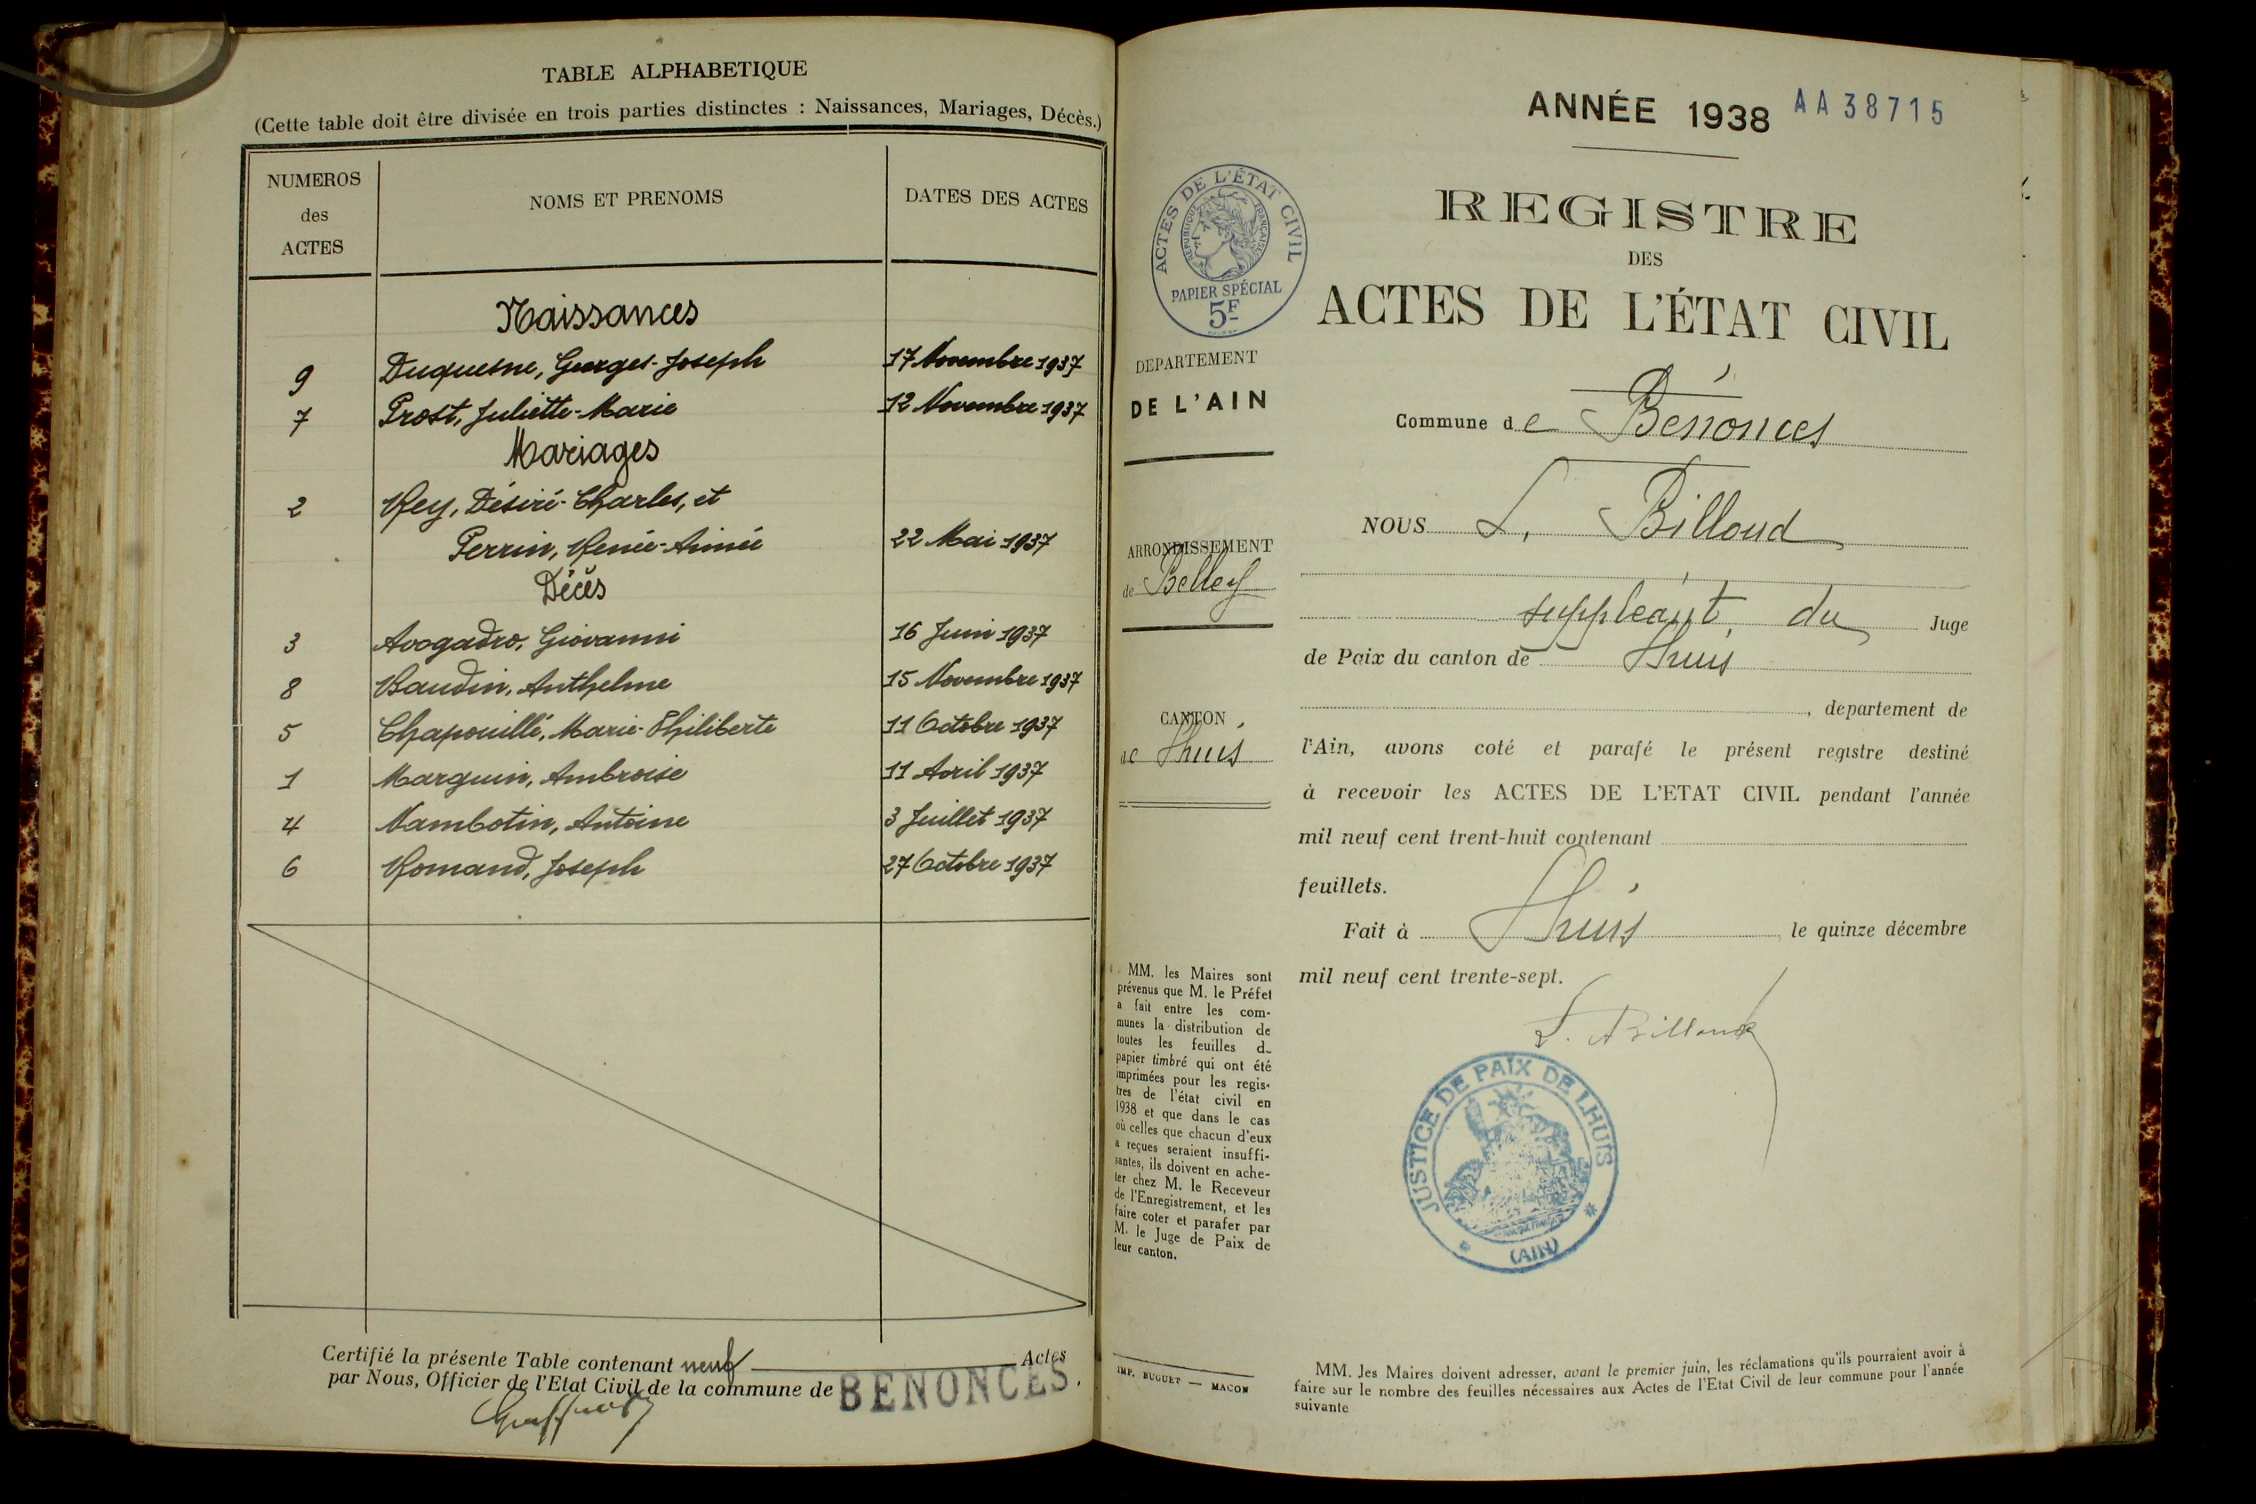 TABLE ALPHABETIQUE
(Cette table doit être divisée en trois parties distinctes : Naissances, Mariages, Décès.)
NUMEROS
des
ACTES
NOMS ET PRENOMS
DATES DES ACTES
Naissances
9 Duquesne, Georges-Joseph 17 Novembre 1937
7 Prost, Juliette-Marie 12 Novembre 1937
Mariages
2 Rey, Désiré-Charles, et
Perrin, Renée-Aimée 22 Mai 1937
Décès
3 Avogadro, Giovanni 16 Juin 1937
8 Baudin, Anthelme 15 Novembre 1937
5 Chapouillé, Marie-Philiberte 11 Octobre 1937
1 Marguin, Ambroise 11 Avril 1937
4 Nambotin, Antoine 3 Juillet 1937
6 Romand, Joseph 27 Octobre 1937
Certifié la présente Table contenant neuf Actes
par Nous, Officier de l'Etat Civil de la commune de BENONCES.
ANNÉE 1938 AA38715
REGISTRE
DES
ACTES DE L'ÉTAT CIVIL
ACTES DE L'ÉTAT CIVIL
RÉPUBLIQUE FRANÇAISE
PAPIER SPÉCIAL
5F
DEPARTEMENT
DE L'AIN
ARRONDISSEMENT
de Belley
CANTON
de Lhuis
MM. les Maires sont
prévenus que M. le Préfet
a fait entre les com-
munes la distribution de
toutes les feuilles d-
papier timbré qui ont été
imprimées pour les regis-
tres de l'état civil en
1938 et que dans le cas
où celles que chacun d'eux
a reçues seraient insuffi-
santes, ils doivent en ache-
ter chez M. le Receveur
de l'Enregistrement, et les
faire coter et parafer par
M. le Juge de Paix de
leur canton.
IMP. BUGUET — MACON
Commune de Bénonces
NOUS L. Billoud
suppléant du Juge
de Paix du canton de Lhuis
, departement de
l'Ain, avons coté et parafé le présent registre destiné
à recevoir les ACTES DE L'ETAT CIVIL pendant l'année
mil neuf cent trent-huit contenant
feuillets.
Fait à Lhuis, le quinze décembre
mil neuf cent trente-sept.
L. Billoud
JUSTICE DE PAIX DE LHUIS
(AIN)
MM. les Maires doivent adresser, avant le premier juin, les réclamations qu'ils pourraient avoir à
faire sur le nombre des feuilles nécessaires aux Actes de l'Etat Civil de leur commune pour l'année
suivante